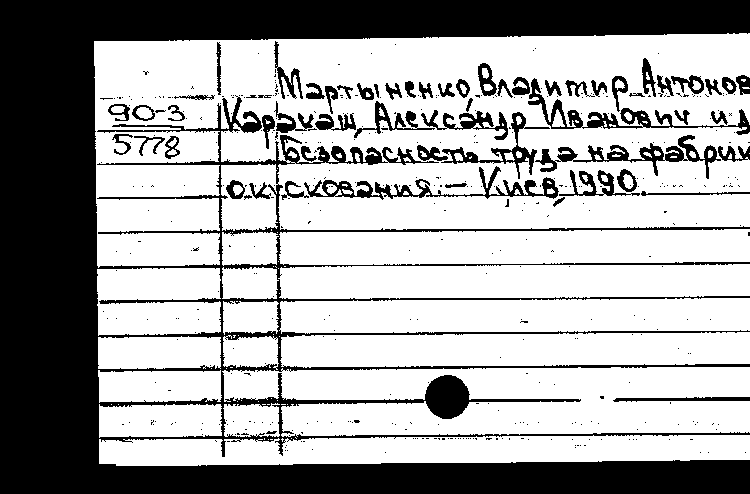 Мартыненко, Владимир Антонов
90-3
Каракаш, Александр Иванович и д
5778
Безопасность труда на фабрик
окускования. – Киев, 1990.